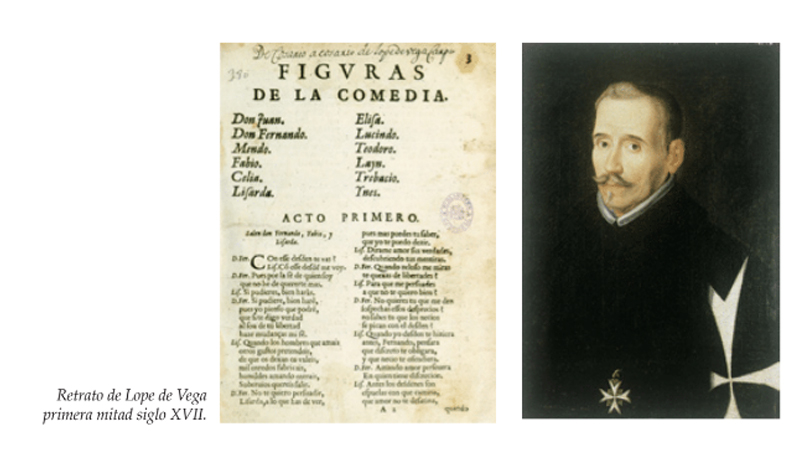 De Cosario a cosario de lope de vega Carpio
3
FIGVRAS
DE LA COMEDIA.
Don Juan.
Don Fernando.
Mendo.
Fabio.
Celia.
Lisarda.
Elisa.
Lucindo.
Teodoro.
Layn.
Trebacio.
Ynes.
ACTO PRIMERO.
Salen don Fernando, Fabio, y
Lisarda.
D.Fer. Con esse desden te vas?
Lis. Cõ esse desdẽ me voy.
D.Fer. Pues por la fè de quien soy
que no he de quererte mas.
Lis. Si pudieres, bien haràs.
D.Fer. Si pudiere, bien harè,
pues yo pienso que podrè,
que si te digo verdad
al son de tu libertad
haze mudanças mi fè.
Lis. Quando los hombres que amais
otros gustos pretendeis,
de que os dexan os valeis,
mil enredos fabricais,
humildes amando
Soberuios
D.Fer. No te quiero persuadir,
Lisarda, a lo que has de ver,
pues mas puedes tu saber,
que yo te puedo dezir.
Lis. Dirame amor sus verdades,
descubriendo tus mentiras.
D.Fer. Quando zeloso me miras
te quexas de libertades?
Lis. Para que me persuades
a que no te quiero bien?
D.Fer. No quieres tu que me den
sospechas essos desprecios?
no sabes tu que los necios
se pican con el desden?
Lis. Quando yo desden te hiziera
antes, Fernando, pensara
que discreto te obligara,
y que necio te ofendiera.
D.Fer. Amando amor persevera
En quien tiene
Lis. Antes los desdenes son
espuelas con que camina,
que amor no se desatina,
A 2
quando
Retrato de Lope de Vega
primera mitad siglo XVII.